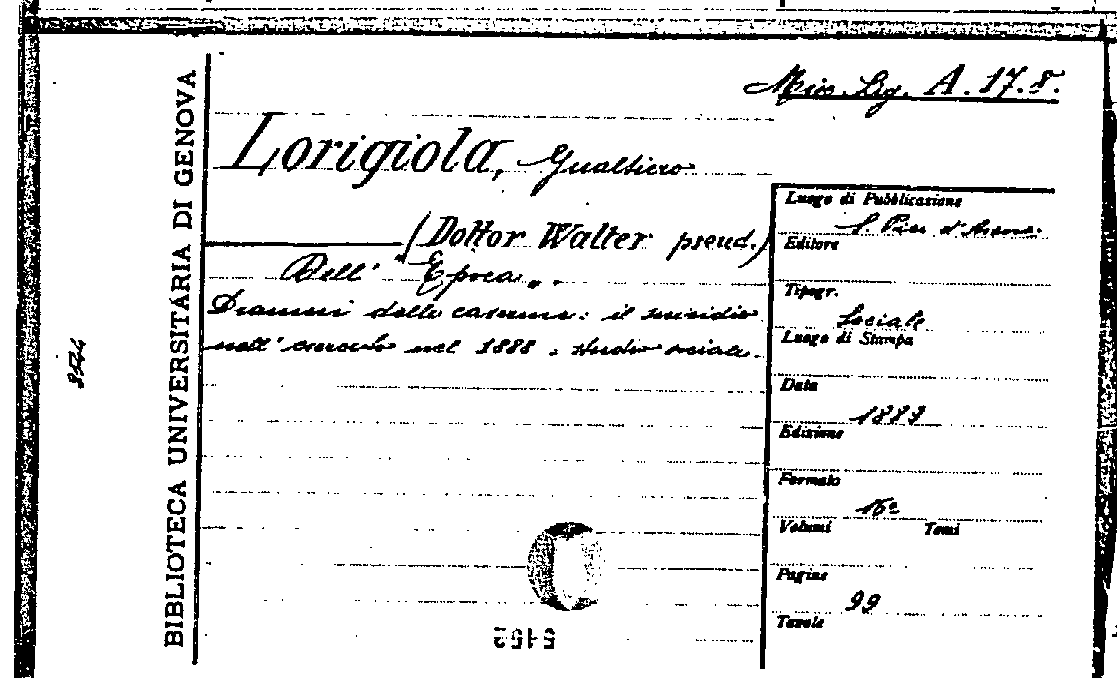 BIBLIOTECA UNIVERSITARIA DI GENOVA
Misc. Lig. A. 17. 8.
Lorigiola, Gualtiero
(Dottor Walter pseud.)
Dell' "Epoca„.
Drammi delle caserme: il suicidio
nell'esercito nel 1888. Studio sociale.
Luogo di Pubblicazione
S. Pier d'Arena.
Editore
Tipogr.
Sociale
Luogo di Stampa
Data
Edizione
Formato
16º
Volumi Tomi
Pagine
99
Tavole
5152